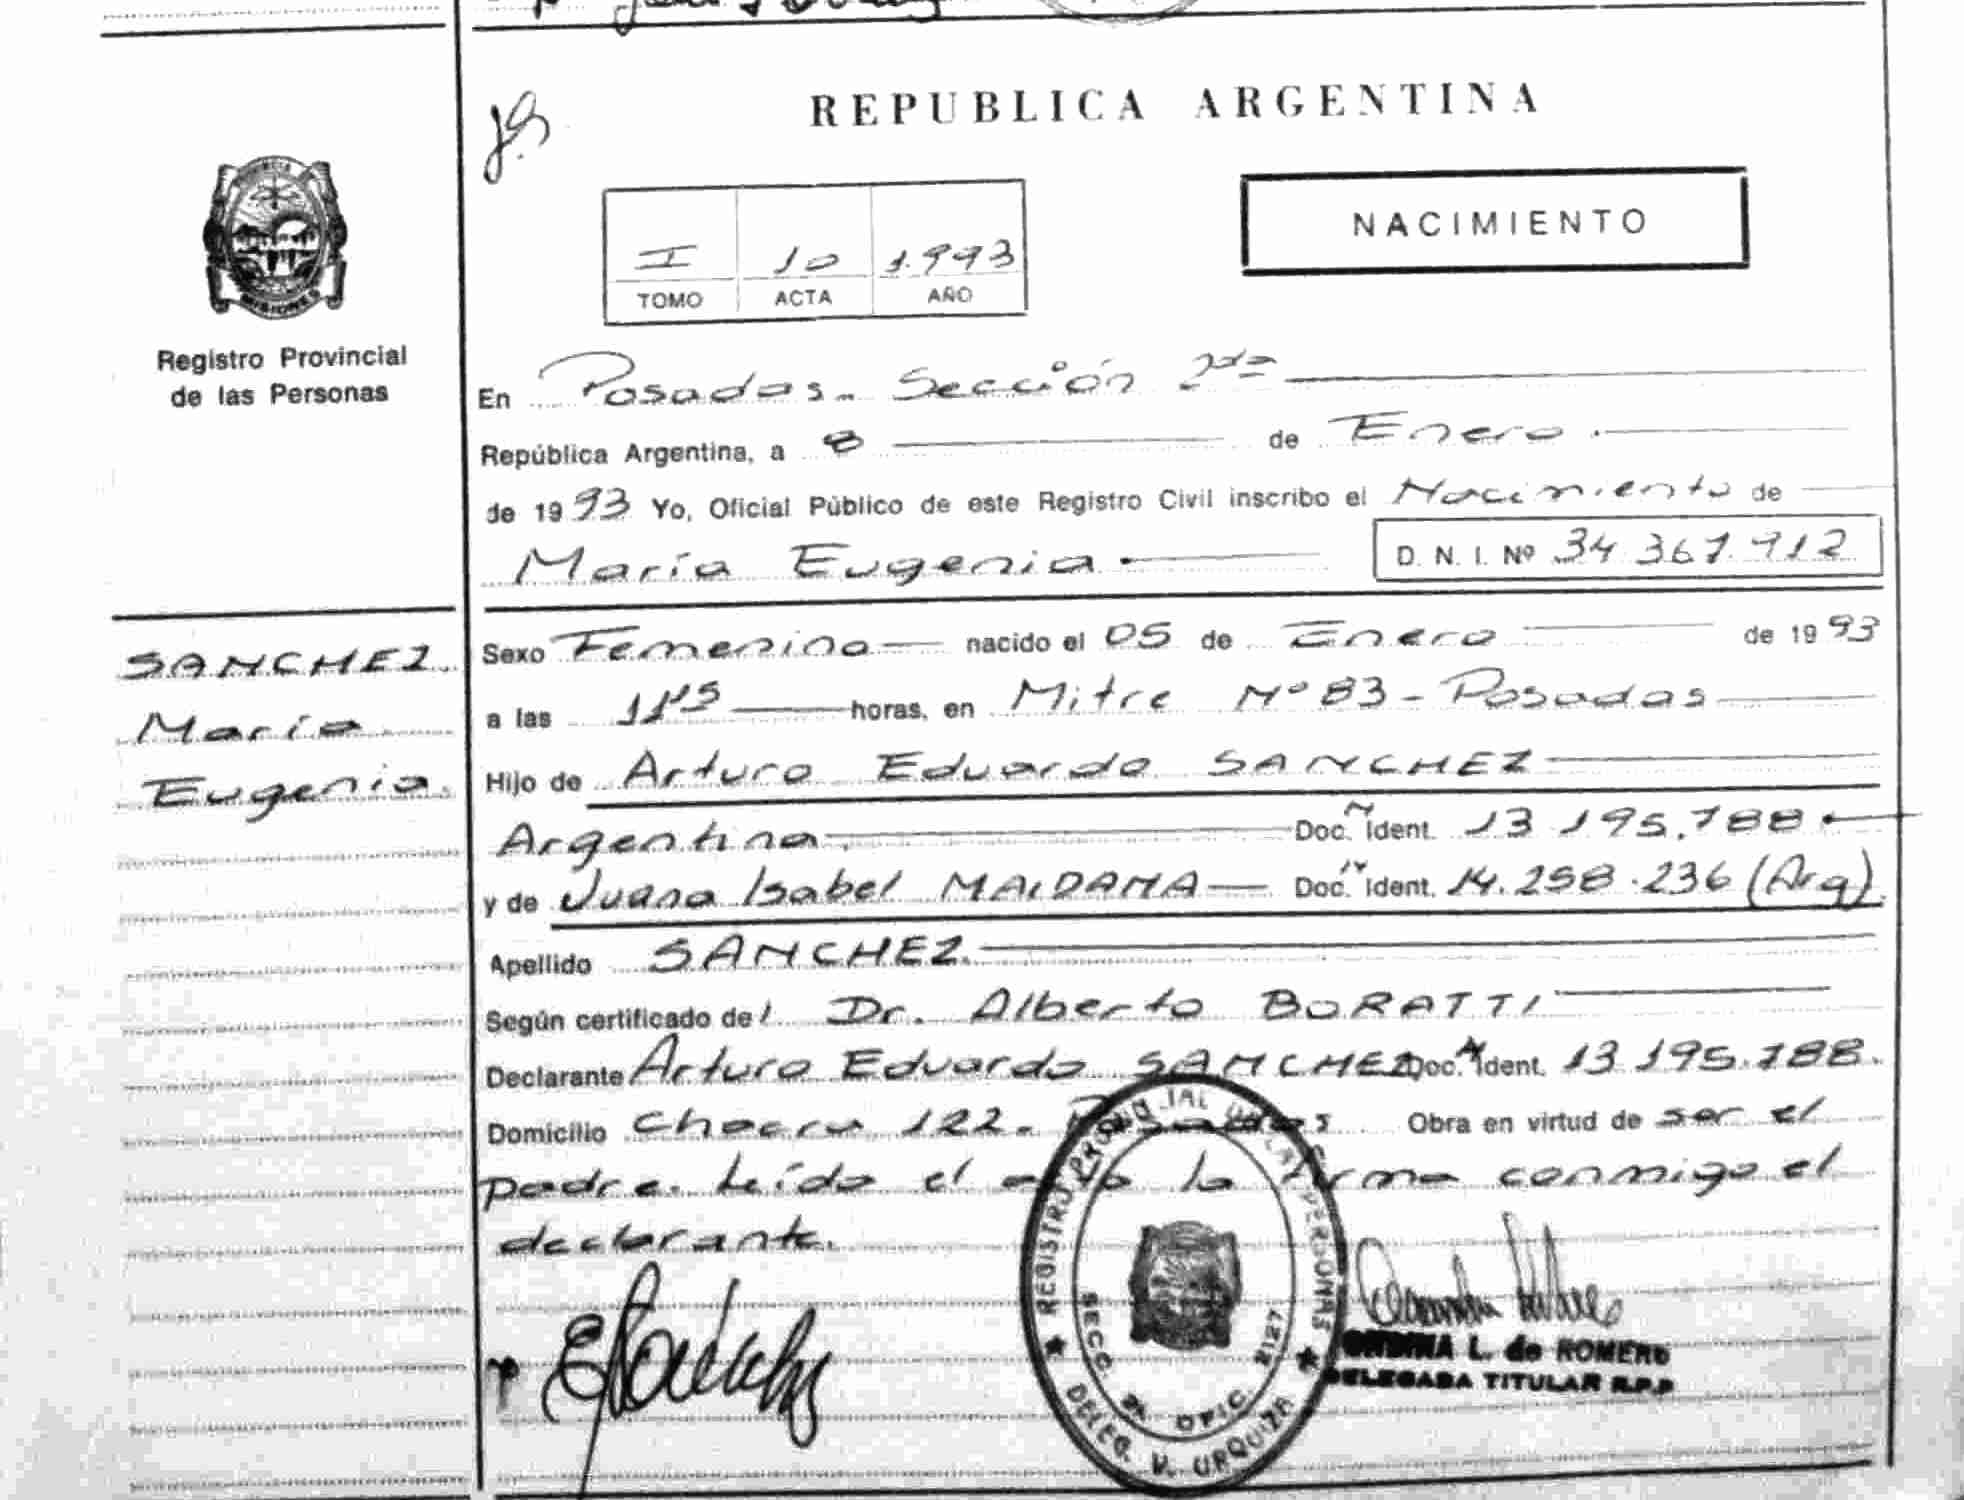 REPUBLICA ARGENTINA
PROVINCIA
MISIONES
Registro Provincial
de las Personas
NACIMIENTO
I 10 1.993
TOMO ACTA AÑO
En Posadas. Sección 2da
República Argentina, a 8 de Enero.
de 1993 Yo, Oficial Público de este Registro Civil inscribo el Nacimiento de
María Eugenia. D. N. I. Nº 34.367.912
SANCHEZ.
María
Eugenia.
Sexo Femenino nacido el 05 de Enero de 1993
a las 11,15 horas, en Mitre Nº 83 - Posadas
Hijo de Arturo Eduardo SANCHEZ
Argentina. Doc. Ident. 13.195.788.
y de Juana Isabel MAIDANA Doc. Ident. 14.258.236 (Arg).
Apellido SANCHEZ.
Según certificado del Dr. Alberto BORATTI
Declarante Arturo Eduardo SANCHEZ Doc. Ident. 13.195.788.
Domicilio Chacra 122. Posadas Obra en virtud de ser el
padre. Leída el acta la firma conmigo el
declarante.
REGISTRO PROVINCIAL DE LAS PERSONAS
SECC. 2ª OFIC. 2127
DELEG. V. URQUIZA
L. de ROMERO
DELEGADA TITULAR R.P.P